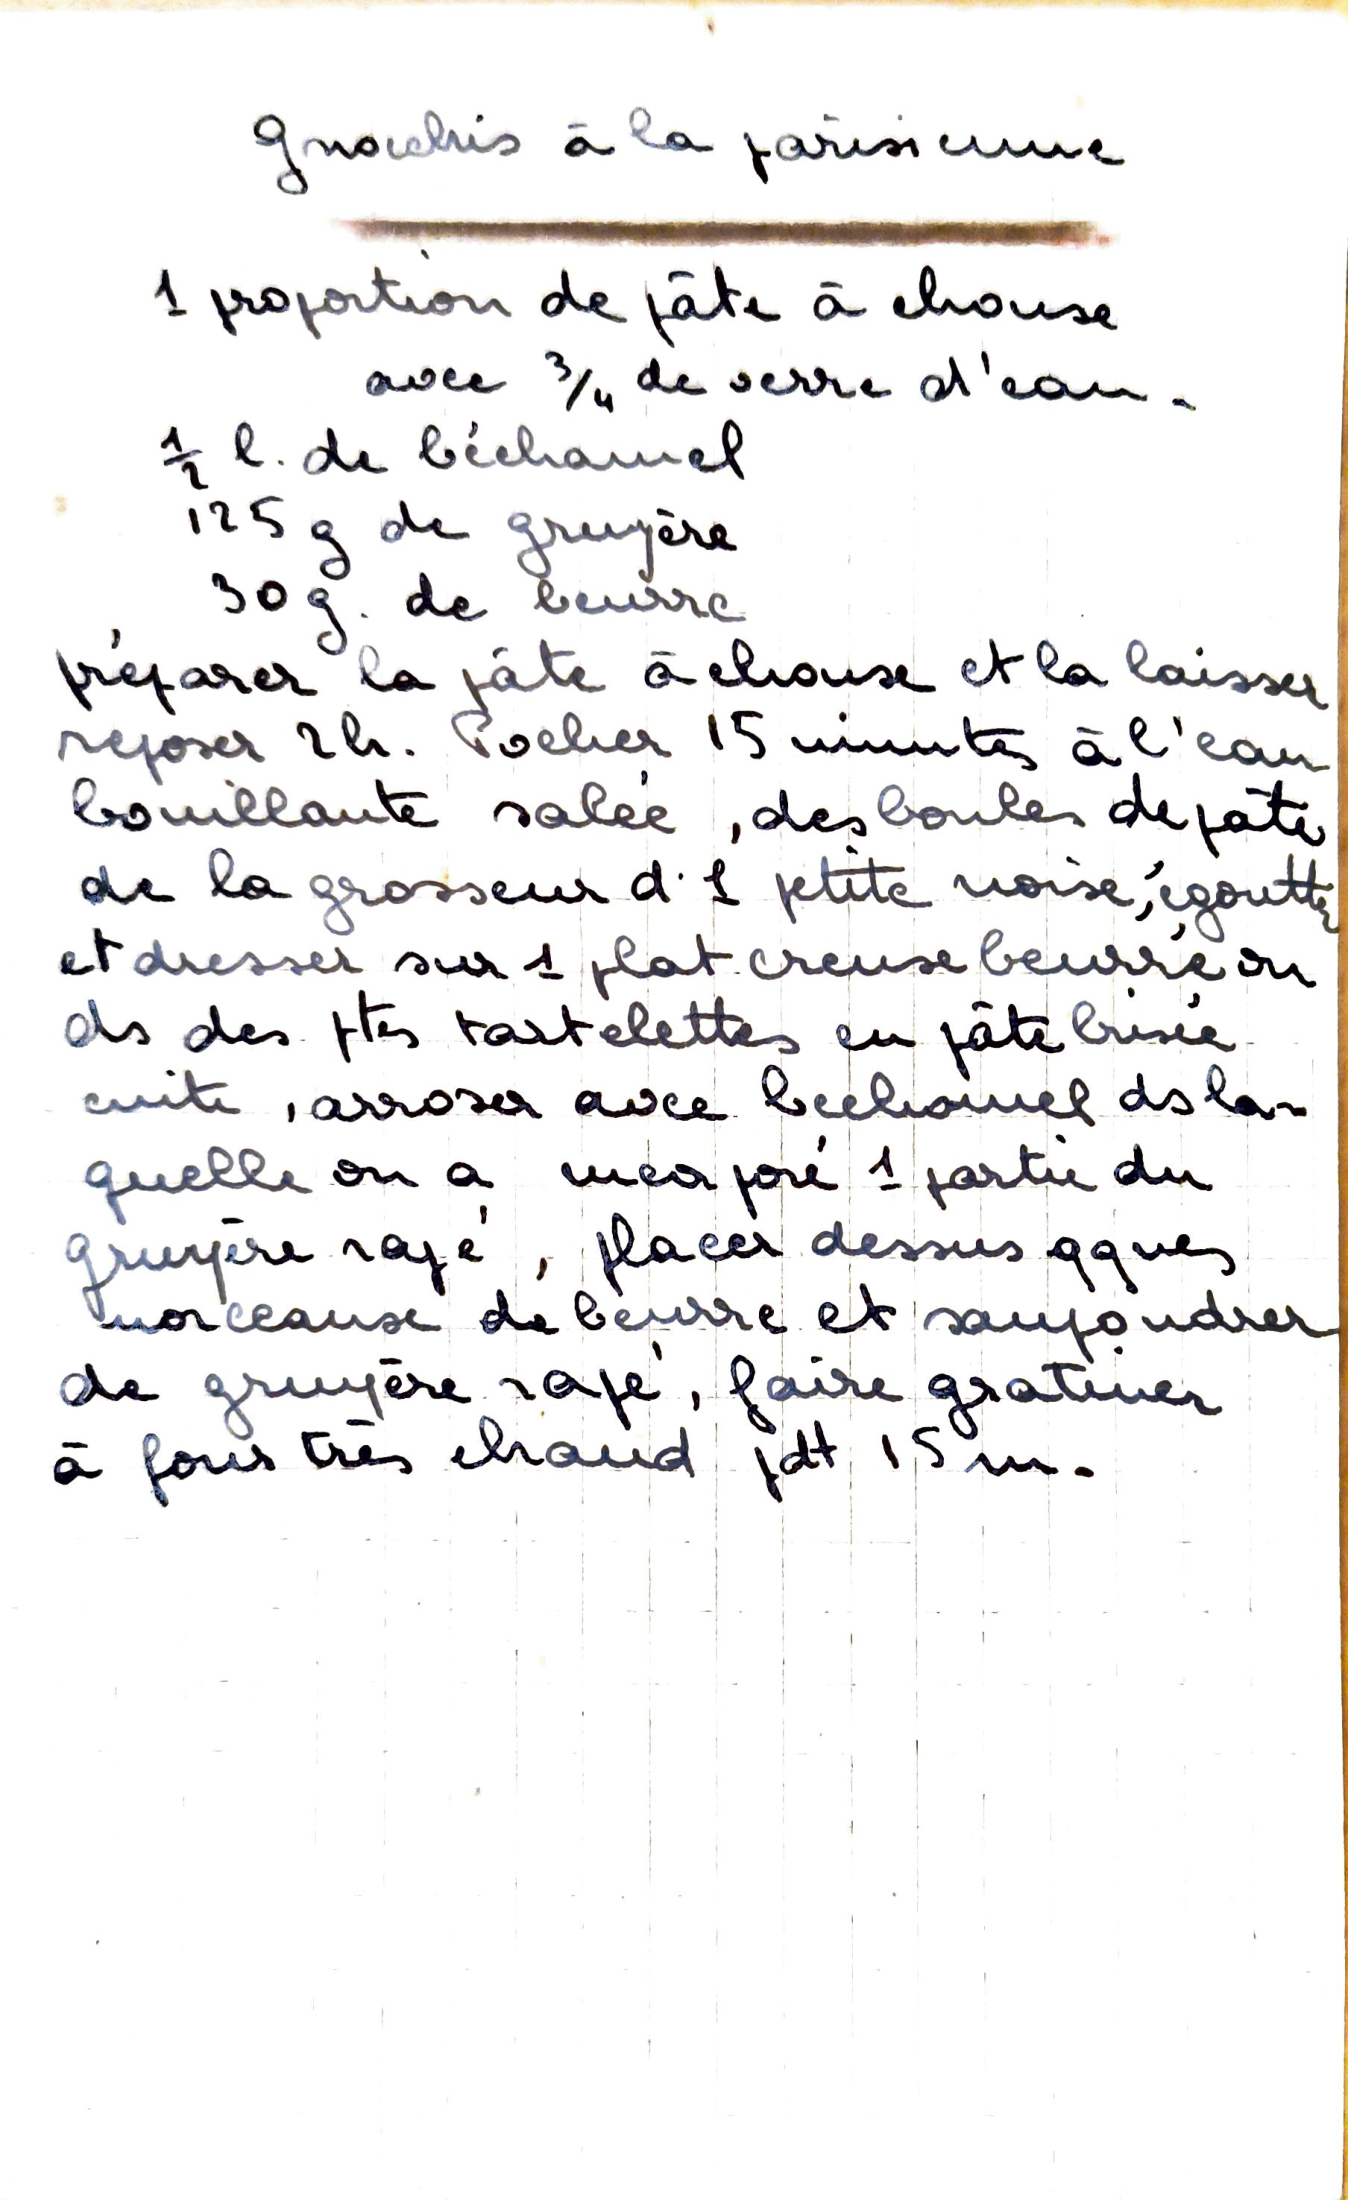 Gnocchis à la parisienne
1 proportion de pâte à choux
avec 3/4 de verre d'eau.
1/2 l. de béchamel
125 g de gruyère
30 g. de beurre
préparer la pâte à choux et la laisser
reposer 2h. Pocher 15 minutes à l'eau
bouillante salée, des boules de pâte
de la grosseur d'1 petite noix, égoutter
et dresser sur 1 plat creux beurré ou
ds des ptes tartelettes en pâte brisée
cuite, arroser avec bechamel ds la-
quelle on a incorporé 1 partie du
gruyère rapé, placer dessus qques
morceaux de beurre et saupoudrer
de gruyère rapé, faire gratiner
à four très chaud pdt 15 m.